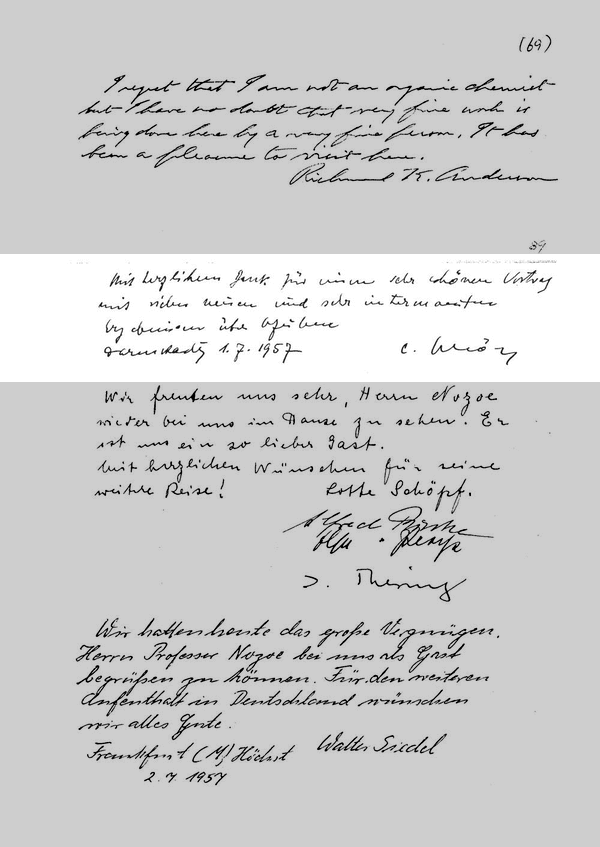 (69)
I regret that I am not an organic chemist
but I have no doubt that very fine work is
being done here by a very fine person. It has
been a pleasure to visit here.
Richard K. Anderson
39
Mit herzlichem Dank für einen sehr schönen Vortrag
mit vielen neuen und sehr interessanten
Ergebnissen über
Darmstadt, 1.7.1957 C. Schöpf
Wir freuten uns sehr, Herrn Nozoe
wieder bei uns im Hause zu sehen. Er
ist uns ein so lieber Gast.
Mit herzlichen Wünschen für seine
weitere Reise! Lotte Schöpf.
Alfred
J. Thesing
Wir hatten heute das große Vergnügen,
Herrn Professor Nozoe bei uns als Gast
begrüßen zu können. Für den weiteren
Aufenthalt in Deutschland wünschen
wir alles Gute.
Frankfurt (M) Höchst Walter Siedel
2.7.1957